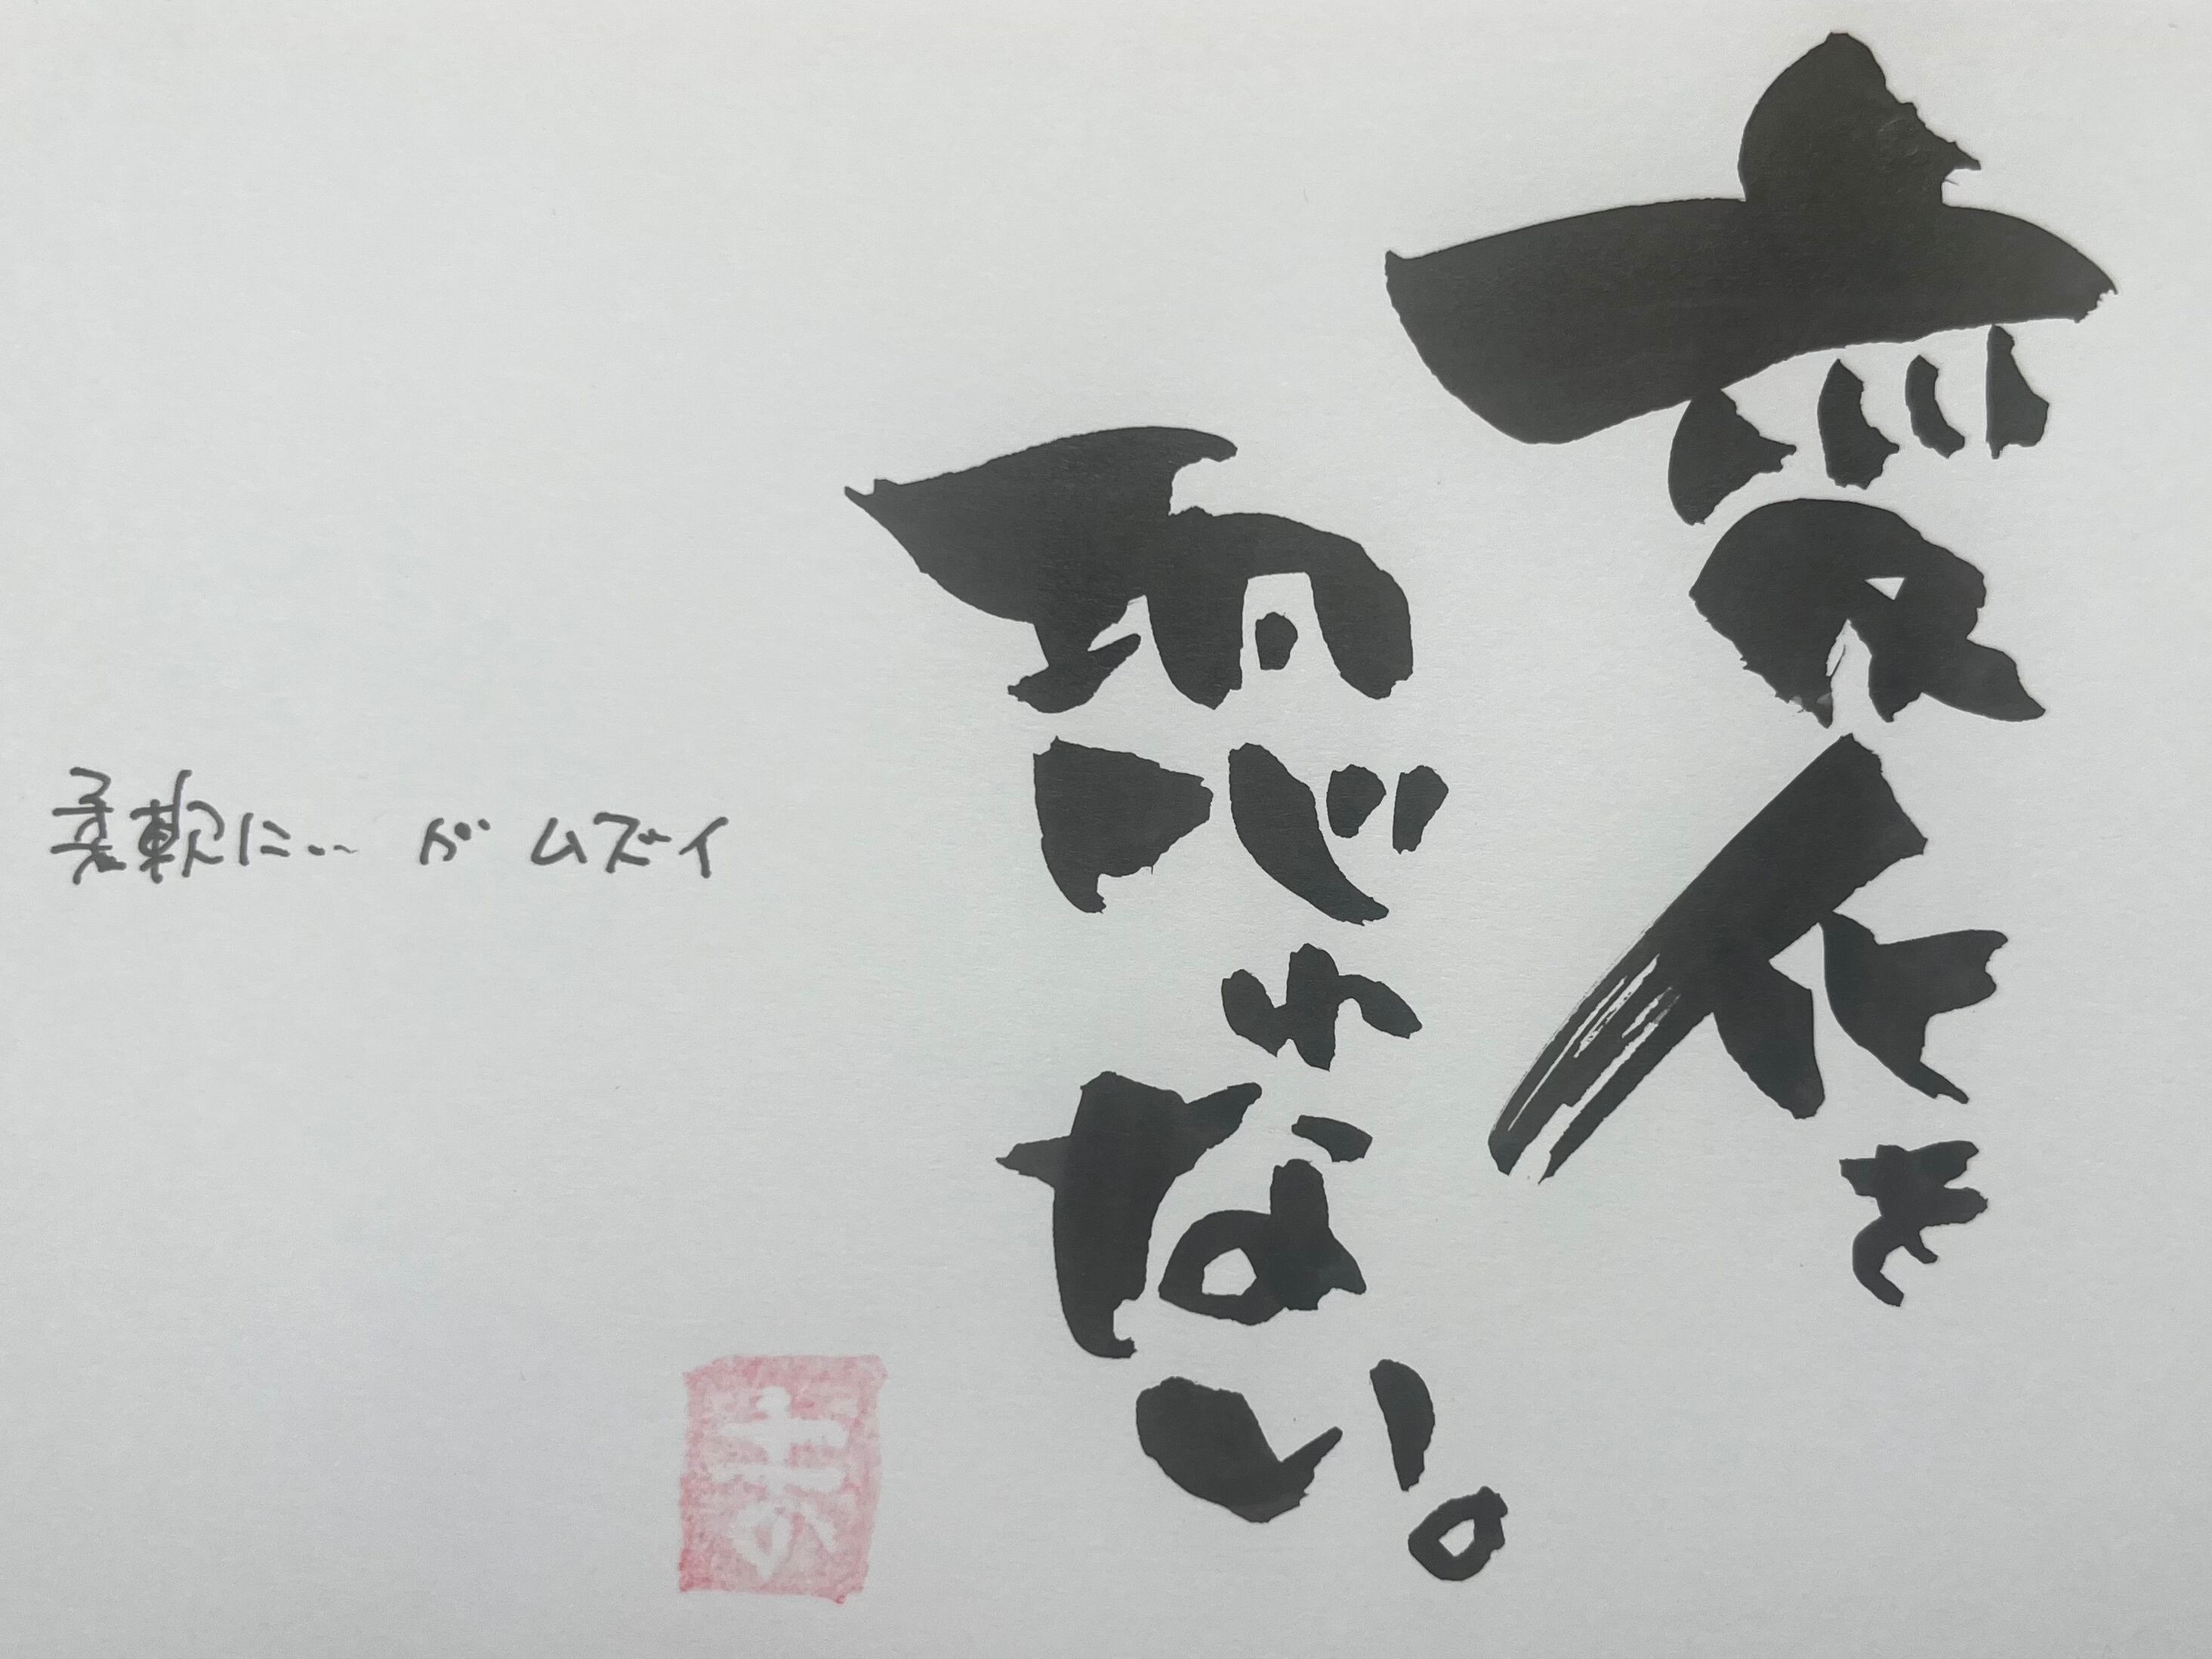 変化を
恐れない。
柔軟に… が ムズイ